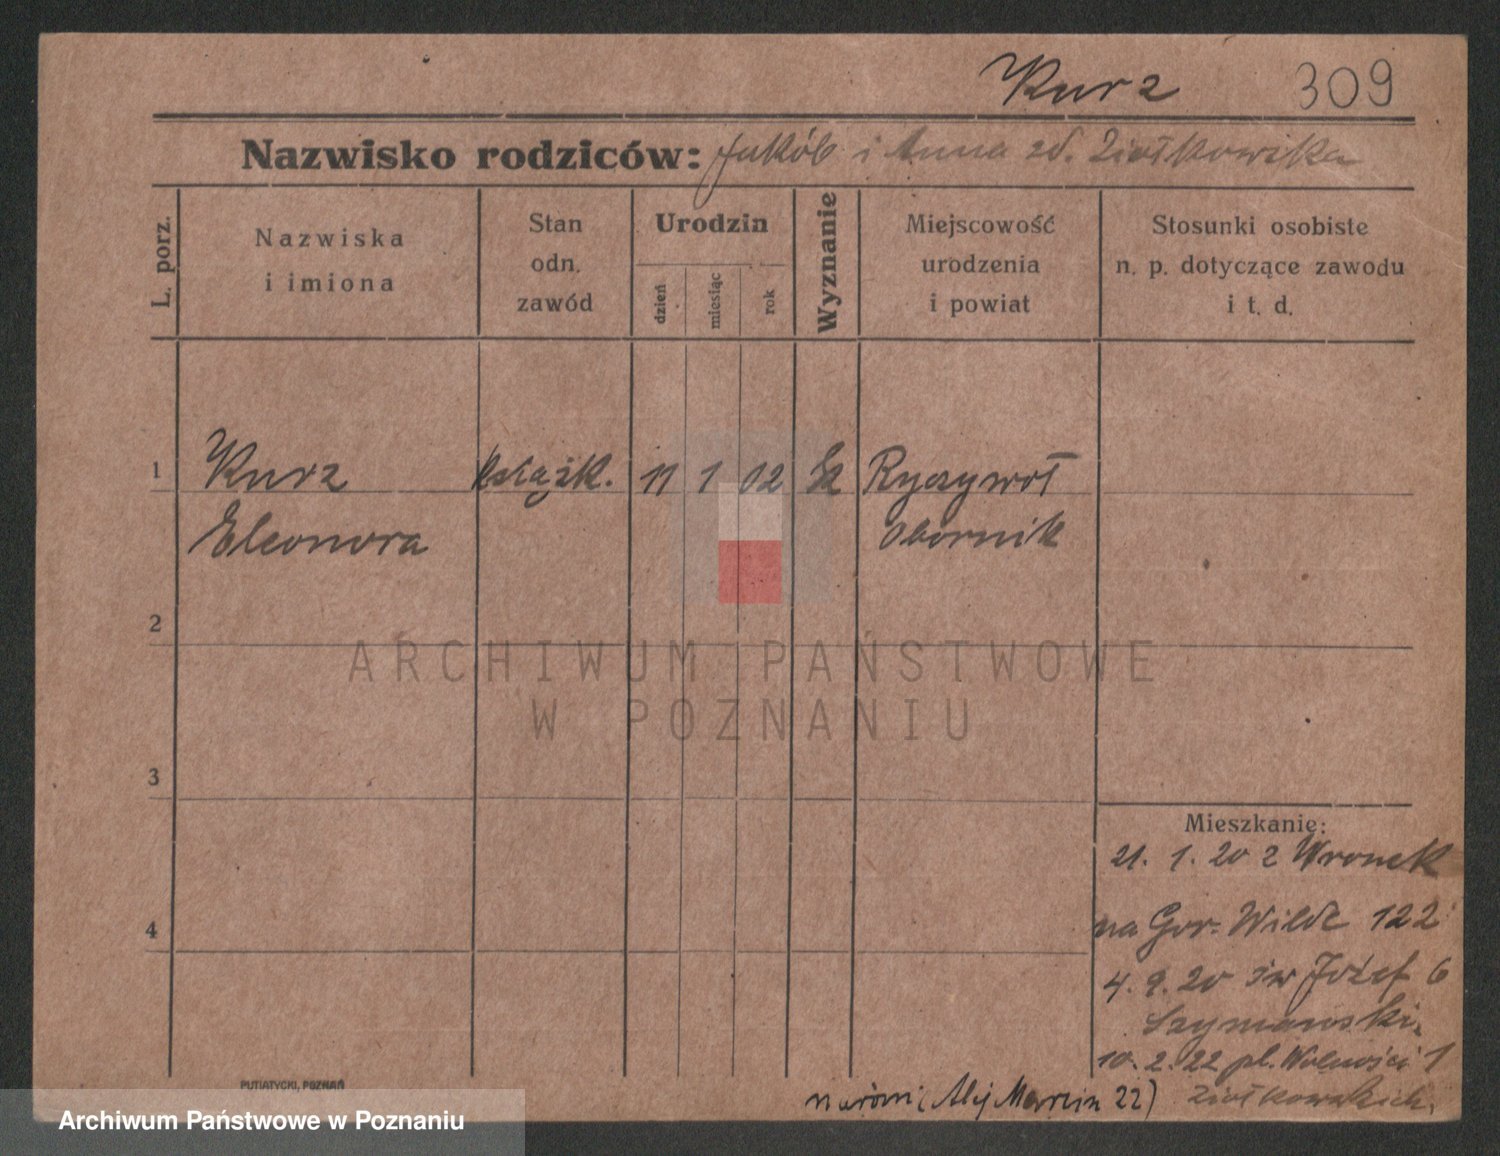 Kurz 309
Nazwisko rodziców: Jakób i Anna zd. Ziołkowska
L. porz.
Nazwiska
i imiona
Stan
odn.
zawód
Urodzin
dzień
miesiąc
rok
Wyznanie
Miejscowość
urodzenia
i powiat
Stosunki osobiste
n. p. dotyczące zawodu
i t. d.
1 Kurz książk. 11 1 02 Ryczywół
Eleonora Obornik
2
ARCHIWUM PAŃSTWOWE
W POZNANIU
3
4
Mieszkanie:
21. 1. 20 z Wronek
na Gor. Wilde 122
4. 9. 20 św Józef 6
Szymański.
10. 2. 22 pl. Wolności 1
Ziołkowskich.
(Alej Marcin 22)
PUTIATYCKI, POZNAŃ
Archiwum Państwowe w Poznaniu